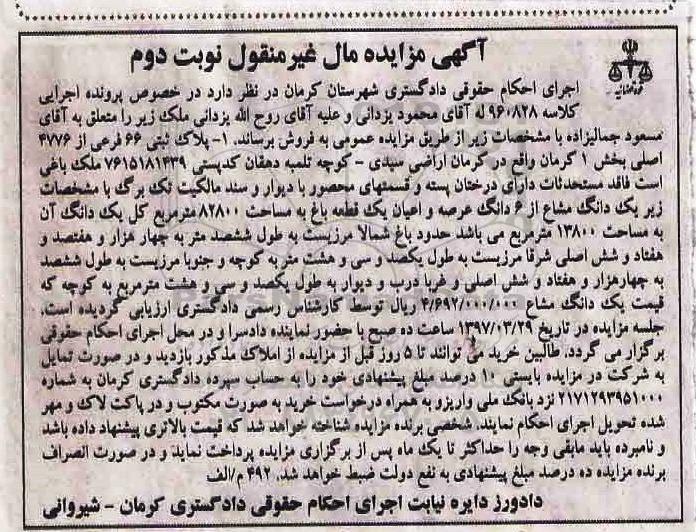 آگهی مزایده مال غیرمنقول نوبت دوم
اجرای احکام حقوقی دادگستری شهرستان کرمان در نظر دارد در خصوص پرونده اجرایی
کلاسه ۹۶۰۸۲۸ له آقای محمود یزدانی و علیه آقای روح الله یزدانی ملک زیر را متعلق به آقای
مسعود جمالیزاده با مشخصات زیر از طریق مزایده عمومی به فروش برساند. ۱- پلاک ثبتی ۶۶ فرعی از ۴۷۷۶
اصلی بخش ۱ کرمان واقع در کرمان اراضی سیدی - کوچه تلمبه دهقان کدپستی ۷۶۱۵۱۸۱۴۳۹ ملک باغی
است فاقد مستحدثات دارای درختان پسته و قسمتهای محصور با دیوار و سند مالکیت تک برگ با مشخصات
زیر یک دانگ مشاع از ۶ دانگ عرصه و اعیان یک قطعه باغ به مساحت ۸۲۸۰۰ مترمربع کل یک دانگ آن
به مساحت ۱۳۸۰۰ مترمربع می باشد حدود باغ شمالا مرزیست به طول ششصد متر به چهار هزار و هفتصد و
هفتاد و شش اصلی شرقا مرزیست به طول یکصد و سی و هشت متر به کوچه و جنوبا مرزیست به طول ششصد
به چهارهزار و هفتاد و شش اصلی و غربا درب و دیوار به طول یکصد و سی و هشت مترمربع به کوچه که
قیمت یک دانگ مشاع ۴/۶۹۲/۰۰۰/۰۰۰ ریال توسط کارشناس رسمی دادگستری ارزیابی گردیده است.
جلسه مزایده در تاریخ ۱۳۹۷/۰۳/۲۹ ساعت ده صبح با حضور نماینده دادسرا و در محل اجرای احکام حقوقی
برگزار می گردد. طالبین خرید می توانند تا ۵ روز قبل از مزایده از املاک مذکور بازدید و در صورت تمایل
به شرکت در مزایده بایستی ۱۰ درصد مبلغ پیشنهادی خود را به حساب سپرده دادگستری کرمان به شماره
۲۱۷۱۲۹۳۹۵۱۰۰۰ نزد بانک ملی واریزو به همراه درخواست خرید به صورت مکتوب و در پاکت لاک و مهر
شده تحویل اجرای احکام نمایند. شخصی برنده مزایده شناخته خواهد شد که قیمت بالاتری پیشنهاد داده باشد
و نامبرده باید مابقی وجه را حداکثر تا یک ماه پس از برگزاری مزایده پرداخت نماید و در صورت انصراف
برنده مزایده ده درصد مبلغ پیشنهادی به نفع دولت ضبط خواهد شد. ۴۹۲ م/الف
دادورز دایره نیابت اجرای احکام حقوقی دادگستری کرمان - شیروانی